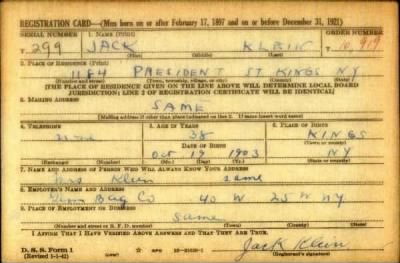 REGISTRATION CARD—(Men born on or after February 17, 1897 and on or before December 31, 1921)
SERIAL NUMBER 1. NAME (Print) ORDER NUMBER
T 299 JACK KLEIN T 10,919
(First) (Middle) (Last)
2. PLACE OF RESIDENCE (Print)
1184 PRESIDENT ST KINGS NY
(Number and street) (Town, township, village, or city) (County) (State)
[THE PLACE OF RESIDENCE GIVEN ON THE LINE ABOVE WILL DETERMINE LOCAL BOARD
JURISDICTION; LINE 2 OF REGISTRATION CERTIFICATE WILL BE IDENTICAL]
3. MAILING ADDRESS
SAME
[Mailing address if other than place indicated on line 2. If same insert word same]
4. TELEPHONE 5. AGE IN YEARS 6. PLACE OF BIRTH
38 KINGS
DATE OF BIRTH (Town or county)
Oct 19 1903 NY
(Exchange) (Number) (Mo.) (Day) (Yr.) (State or country)
7. NAME AND ADDRESS OF PERSON WHO WILL ALWAYS KNOW YOUR ADDRESS
Klein same
8. EMPLOYER'S NAME AND ADDRESS
Bag Co 40 W 25 NY
9. PLACE OF EMPLOYMENT OR BUSINESS
same
(Number and street or R. F. D. number) (Town) (County) (State)
I AFFIRM THAT I HAVE VERIFIED ABOVE ANSWERS AND THAT THEY ARE TRUE.
D. S. S. Form 1
(Revised 1-1-42) (over)
Jack Klein
(Registrant's signature)